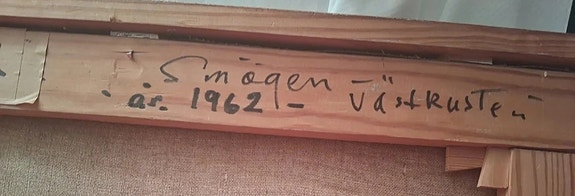 Smögen - Västkusten
år. 1962 -